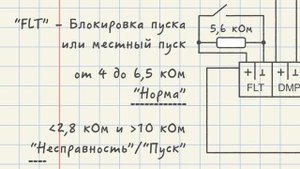 "FLT" - Блокировка пуска
или местный пуск
от 4 до 6,5 кОм
"Норма"
<2,8 кОм и >10 кОм
"Несправность"/"Пуск"
5,6 кОм
+ ⊥ + ⊥
FLT DMP